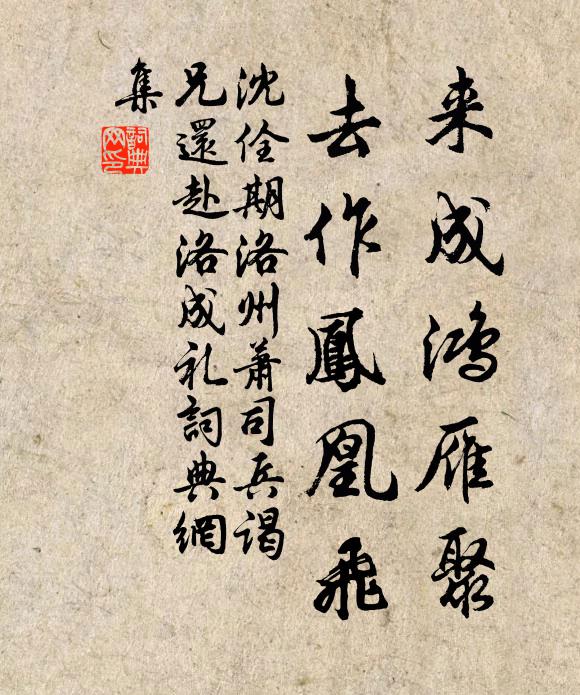 来成鸿雁聚
去作鳳凰飛
沈佺期洛州萧司兵谒
兄還赴洛成礼詞典網
集
詞典
网印